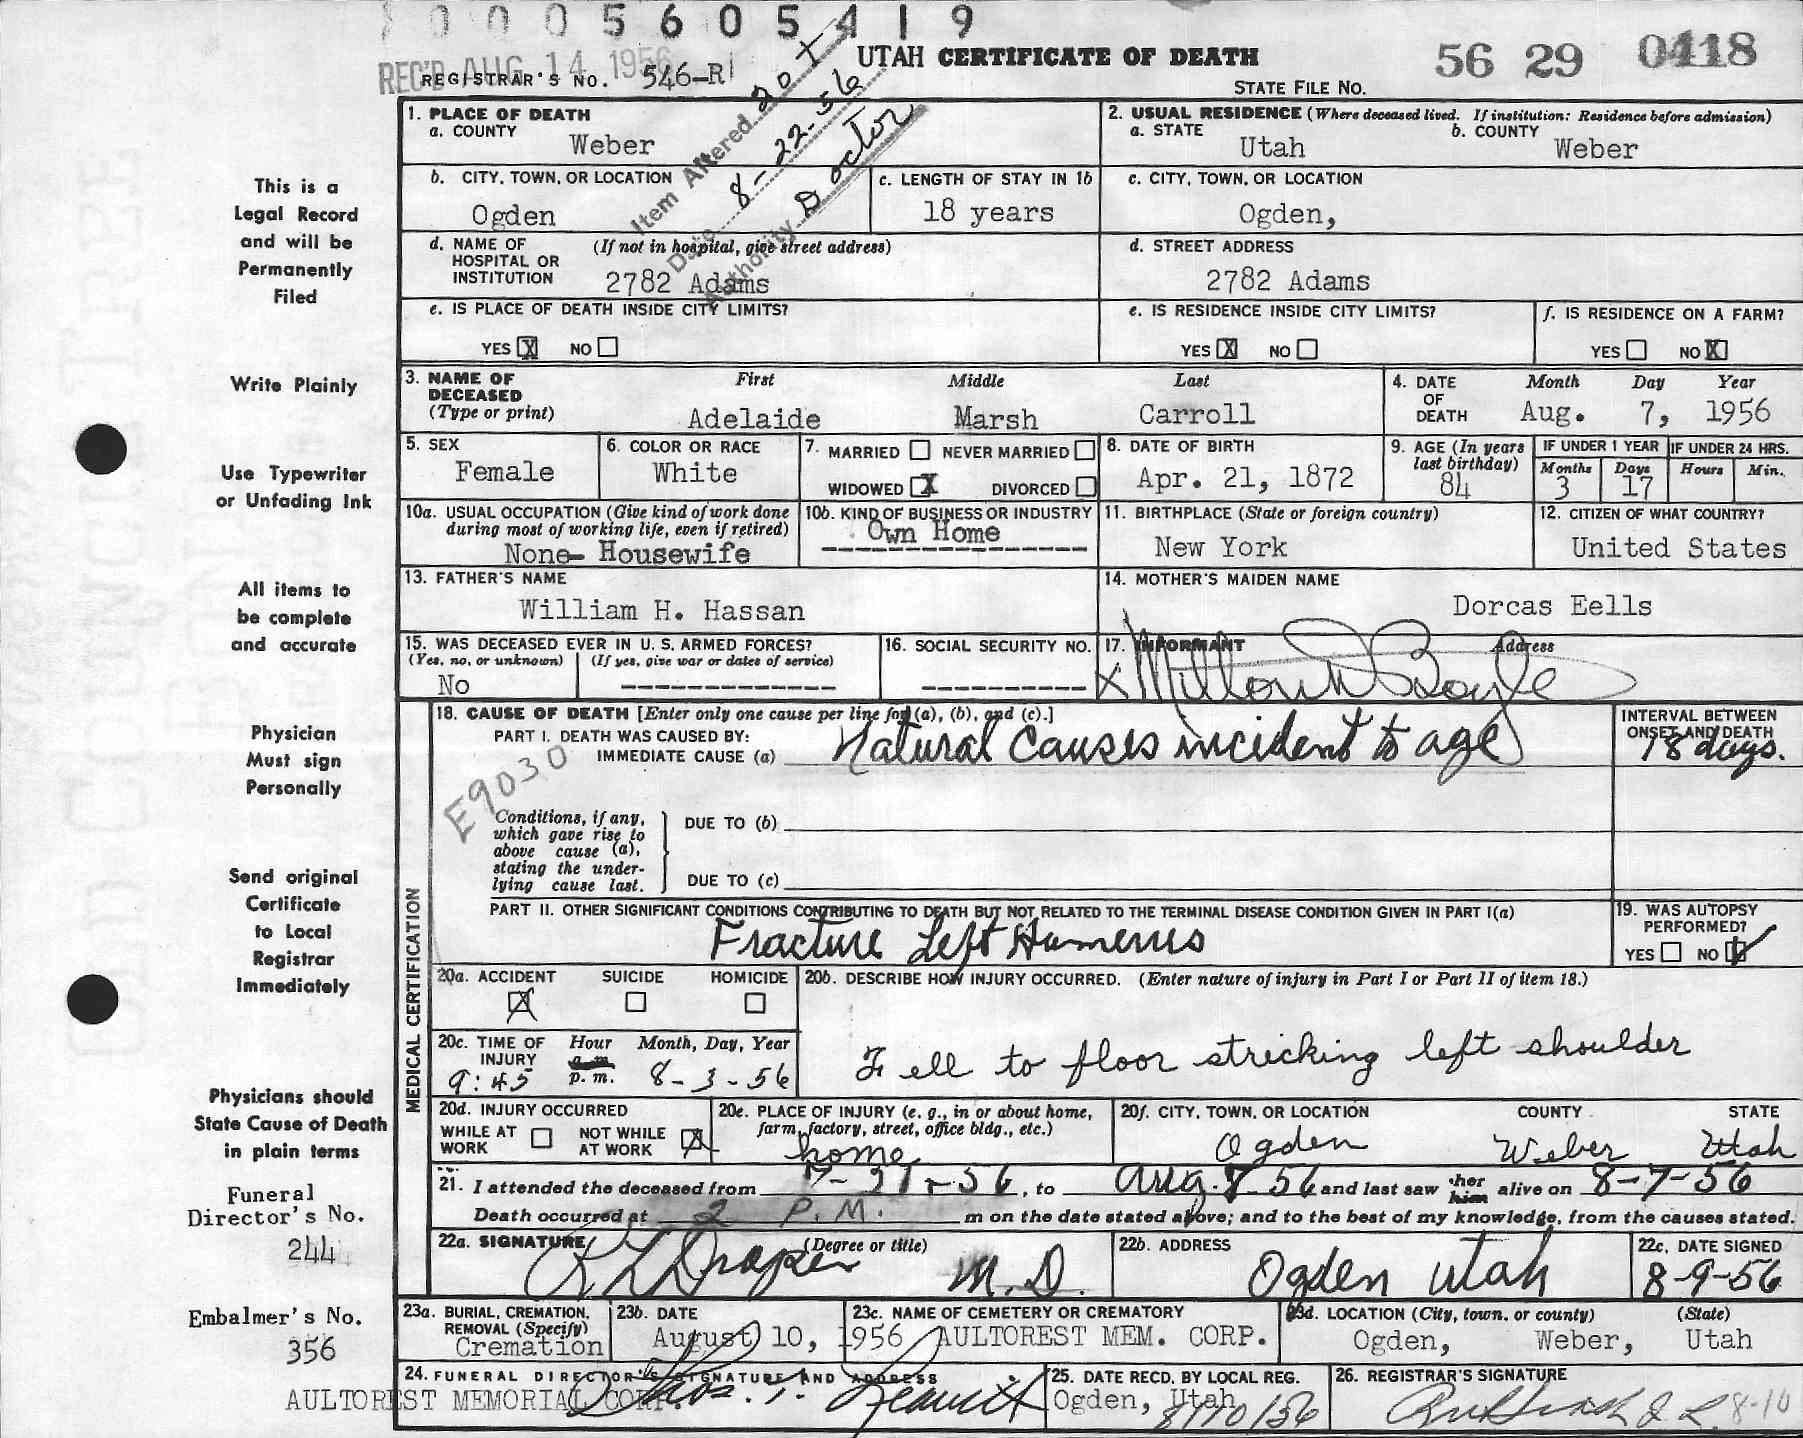 0005605419
REC'D AUG 14 1956
REGISTRAR'S NO. 546-R
UTAH CERTIFICATE OF DEATH
STATE FILE NO.
56 29 0418
Item Altered 20 f
Date 8-22-56
Authority Doctor
This is a
Legal Record
and will be
Permanently
Filed
Write Plainly
Use Typewriter
or Unfading Ink
All items to
be complete
and accurate
Physician
Must sign
Personally
Send original
Certificate
to Local
Registrar
Immediately
Physicians should
State Cause of Death
in plain terms
Funeral
Director's No.
244
Embalmer's No.
356
1. PLACE OF DEATH
a. COUNTY
Weber
2. USUAL RESIDENCE (Where deceased lived. If institution: Residence before admission)
a. STATE b. COUNTY
Utah Weber
b. CITY, TOWN, OR LOCATION
Ogden
c. LENGTH OF STAY IN 1b
18 years
c. CITY, TOWN, OR LOCATION
Ogden,
d. NAME OF HOSPITAL OR INSTITUTION (If not in hospital, give street address)
2782 Adams
d. STREET ADDRESS
2782 Adams
e. IS PLACE OF DEATH INSIDE CITY LIMITS?
YES X NO
e. IS RESIDENCE INSIDE CITY LIMITS?
YES X NO
f. IS RESIDENCE ON A FARM?
YES NO X
3. NAME OF DECEASED (Type or print) First Middle Last
Adelaide Marsh Carroll
4. DATE OF DEATH Month Day Year
Aug. 7, 1956
5. SEX
Female
6. COLOR OR RACE
White
7. MARRIED NEVER MARRIED
WIDOWED X DIVORCED
8. DATE OF BIRTH
Apr. 21, 1872
9. AGE (In years last birthday)
84
IF UNDER 1 YEAR IF UNDER 24 HRS.
Months Days Hours Min.
3 17
10a. USUAL OCCUPATION (Give kind of work done during most of working life, even if retired)
None- Housewife
10b. KIND OF BUSINESS OR INDUSTRY
Own Home
11. BIRTHPLACE (State or foreign country)
New York
12. CITIZEN OF WHAT COUNTRY?
United States
13. FATHER'S NAME
William H. Hassan
14. MOTHER'S MAIDEN NAME
Dorcas Eells
15. WAS DECEASED EVER IN U. S. ARMED FORCES?
(Yes, no, or unknown) (If yes, give war or dates of service)
No --------------
16. SOCIAL SECURITY NO.
---------
17. INFORMANT Address
X
MEDICAL CERTIFICATION
18. CAUSE OF DEATH [Enter only one cause per line for (a), (b), and (c).]
PART I. DEATH WAS CAUSED BY:
IMMEDIATE CAUSE (a) Natural Causes incident to age
INTERVAL BETWEEN ONSET AND DEATH
18 days.
E9030
Conditions, if any, which gave rise to above cause (a), stating the underlying cause last.
DUE TO (b)
DUE TO (c)
PART II. OTHER SIGNIFICANT CONDITIONS CONTRIBUTING TO DEATH BUT NOT RELATED TO THE TERMINAL DISEASE CONDITION GIVEN IN PART I(a)
Fracture Left Humerus
19. WAS AUTOPSY PERFORMED?
YES NO
20a. ACCIDENT SUICIDE HOMICIDE
X
20b. DESCRIBE HOW INJURY OCCURRED. (Enter nature of injury in Part I or Part II of item 18.)
Fell to floor stricking left shoulder
20c. TIME OF INJURY Hour a.m. p.m. Month, Day, Year
9:45 8-3-56
20d. INJURY OCCURRED
WHILE AT WORK NOT WHILE AT WORK X
20e. PLACE OF INJURY (e. g., in or about home, farm, factory, street, office bldg., etc.)
home
20f. CITY, TOWN, OR LOCATION COUNTY STATE
Ogden Weber Utah
21. I attended the deceased from 7-31-56, to Aug. 7 56 and last saw her him alive on 8-7-56
Death occurred at 2 P.M. m on the date stated above; and to the best of my knowledge, from the causes stated.
22a. SIGNATURE (Degree or title)
Draper M.D.
22b. ADDRESS
Ogden Utah
22c. DATE SIGNED
8-9-56
23a. BURIAL, CREMATION, REMOVAL (Specify)
Cremation
23b. DATE
August 10, 1956
23c. NAME OF CEMETERY OR CREMATORY
AULTOREST MEM. CORP.
23d. LOCATION (City, town, or county) (State)
Ogden, Weber, Utah
24. FUNERAL DIRECTOR'S SIGNATURE AND ADDRESS
AULTOREST MEMORIAL CORP.
25. DATE RECD. BY LOCAL REG.
Ogden, Utah
8/10/56
26. REGISTRAR'S SIGNATURE
8-10